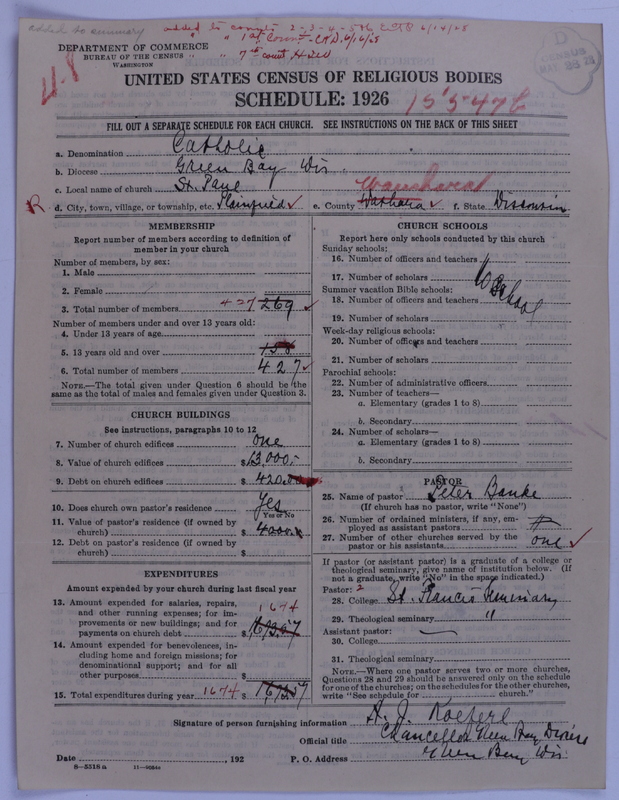 added to summary
added to county 2-3-4-5th 6/14/28
" " 1st Count-C.A.D. 6/16/28
" " 7th count
DEPARTMENT OF COMMERCE
BUREAU OF THE CENSUS
WASHINGTON
D
CENSUS
UNITED STATES CENSUS OF RELIGIOUS BODIES
SCHEDULE: 1926
FILL OUT A SEPARATE SCHEDULE FOR EACH CHURCH. SEE INSTRUCTIONS ON THE BACK OF THIS SHEET
a. Denomination Catholic
b. Diocese Green Bay Wis.
c. Local name of church St. Paul
Waushara
R d. City, town, village, or township, etc. Plainfield e. County Washara f. State Wisconsin
MEMBERSHIP
Report number of members according to definition of
member in your church
Number of members, by sex:
1. Male
2. Female
3. Total number of members 427 269
Number of members under and over 13 years old:
4. Under 13 years of age
5. 13 years old and over 158
6. Total number of members 427
NOTE.—The total given under Question 6 should be the
same as the total of males and females given under Question 3.
CHURCH BUILDINGS
See instructions, paragraphs 10 to 12
7. Number of church edifices one
8. Value of church edifices $13,000.-
9. Debt on church edifices $420.
10. Does church own pastor's residence Yes
Yes or No
11. Value of pastor's residence (if owned by
church) $4000.
12. Debt on pastor's residence (if owned by
church) $
EXPENDITURES
Amount expended by your church during last fiscal year
13. Amount expended for salaries, repairs,
and other running expenses; for im-
provements or new buildings; and for
payments on church debt $
1674
14. Amount expended for benevolences, in-
cluding home and foreign missions; for
denominational support; and for all
other purposes $
15. Total expenditures during year 1674 $
CHURCH SCHOOLS
Report here only schools conducted by this church
Sunday schools:
16. Number of officers and teachers
17. Number of scholars
Summer vacation Bible schools:
18. Number of officers and teachers
School
19. Number of scholars
Week-day religious schools:
20. Number of officers and teachers
21. Number of scholars
Parochial schools:
22. Number of administrative officers
23. Number of teachers—
a. Elementary (grades 1 to 8)
b. Secondary
24. Number of scholars—
a. Elementary (grades 1 to 8)
b. Secondary
PASTOR
25. Name of pastor Peter Banke
(If church has no pastor, write "None")
26. Number of ordained ministers, if any, em-
ployed as assistant pastors
27. Number of other churches served by the
pastor or his assistants one
If pastor (or assistant pastor) is a graduate of a college or
theological seminary, give name of institution below. (If
not a graduate, write "No" in the space indicated.)
Pastor: 2
28. College St. Francis Seminary
29. Theological seminary "
Assistant pastor:
30. College
31. Theological seminary
NOTE.—Where one pastor serves two or more churches,
Questions 28 and 29 should be answered only on the schedule
for one of the churches; on the schedules for the other churches,
write "See schedule for church."
Signature of person furnishing information A. J. Koeferl
Official title Chancellor Green Bay Diocese
Date , 192 P. O. Address Green Bay Wis
8—5518a 11—9034a